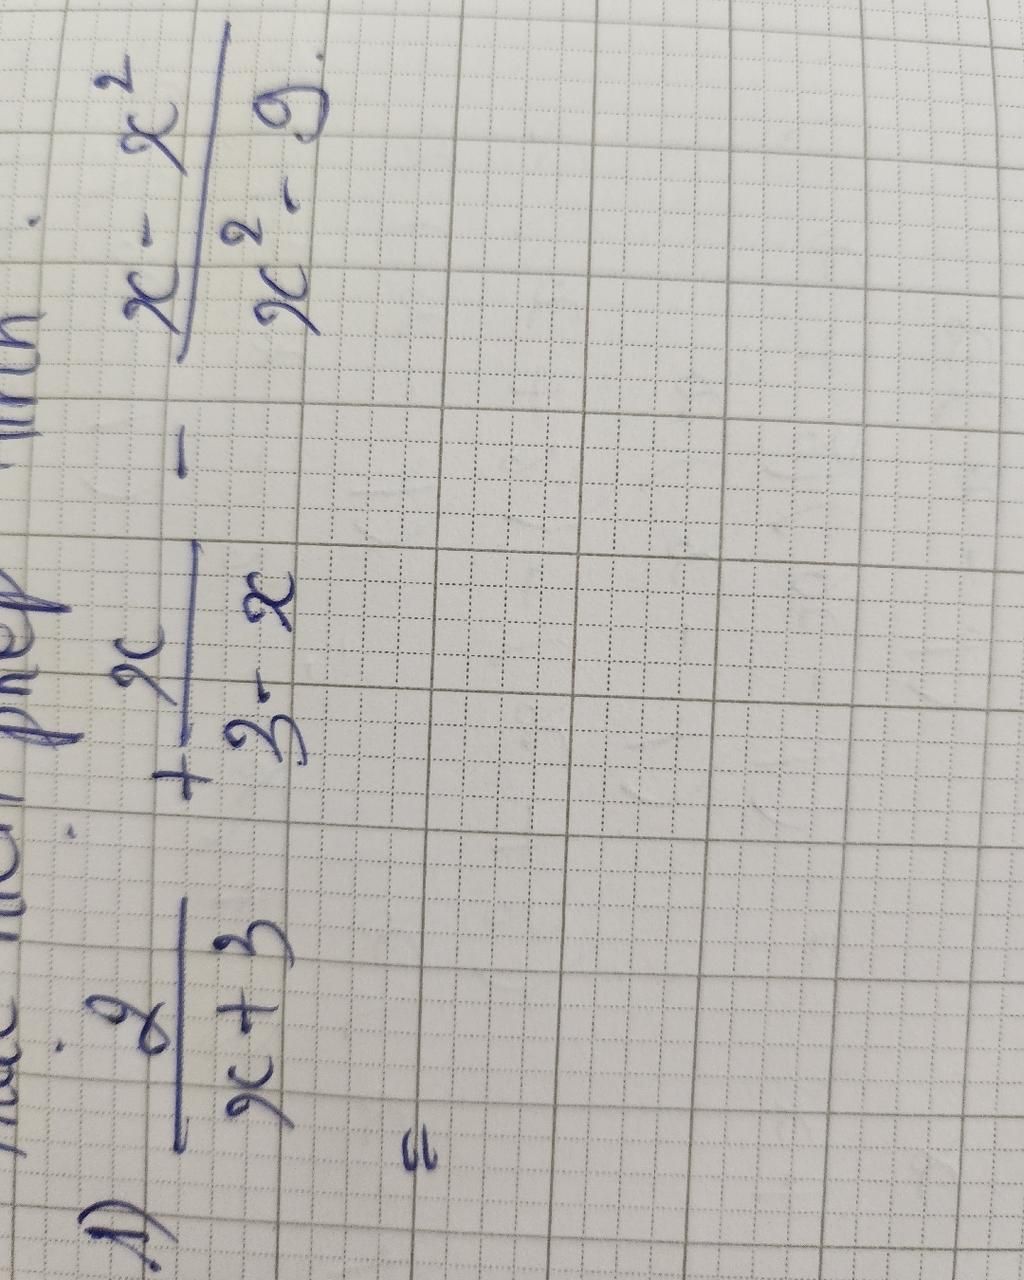 phép tính.
1) \frac{2}{x+3} + \frac{x}{3-x} - \frac{x-x^2}{x^2-9}.
=